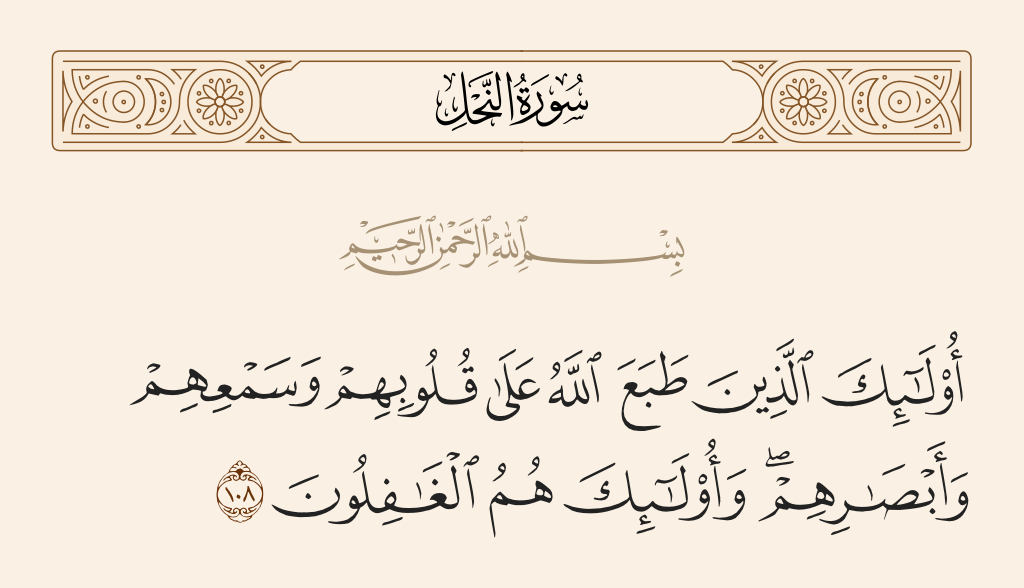 سُورَةُ النَّحْلِ
بِسْمِ ٱللَّهِ ٱلرَّحْمَٰنِ ٱلرَّحِيمِ
أُو۟لَٰٓئِكَ ٱلَّذِينَ طَبَعَ ٱللَّهُ عَلَىٰ قُلُوبِهِمْ وَسَمْعِهِمْ
وَأَبْصَٰرِهِمْ ۖ وَأُو۟لَٰٓئِكَ هُمُ ٱلْغَٰفِلُونَ ١٠٨